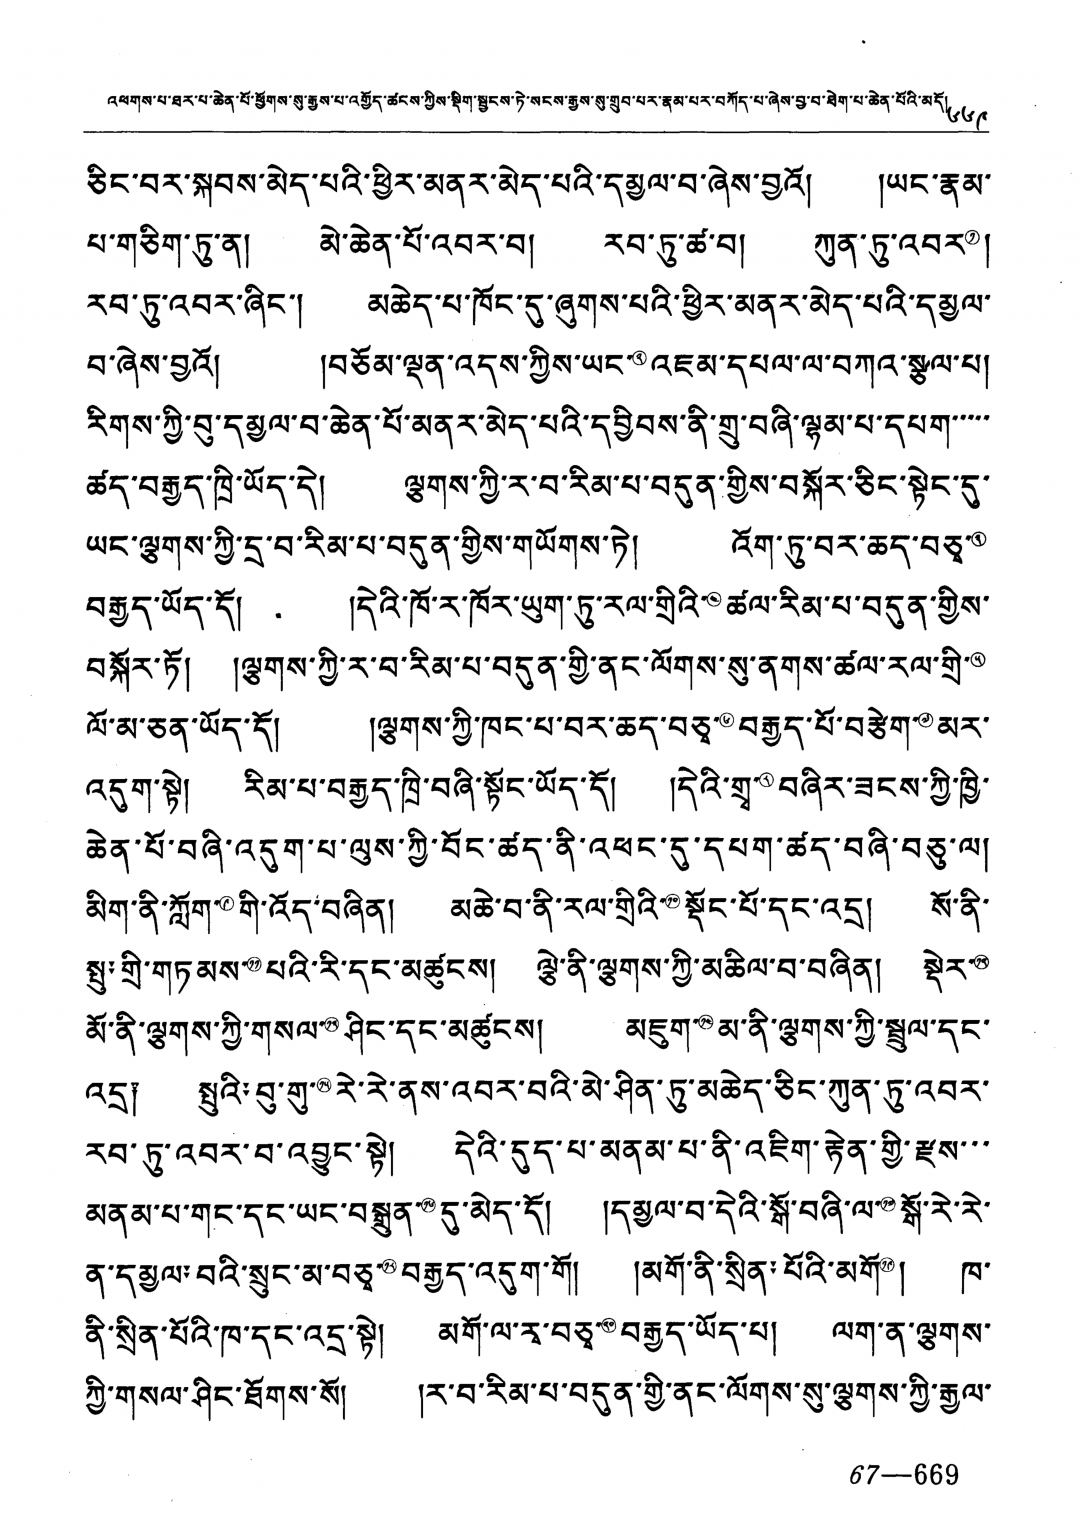 འཕགས་པ་ཐར་པ་ཆེན་པོ་ཕྱོགས་སུ་རྒྱས་པ་འགྱོད་ཚངས་ཀྱིས་སྡིག་སྦྱངས་ཏེ་སངས་རྒྱས་སུ་གྲུབ་པར་རྣམ་པར་བཀོད་པ་ཞེས་བྱ་བ་ཐེག་པ་ཆེན་པོའི་མདོ། ༦༦༩
ཅིང་བར་སྐབས་མེད་པའི་ཕྱིར་མནར་མེད་པའི་དམྱལ་བ་ཞེས་བྱའོ། །ཡང་རྣམ་
པ་གཅིག་ཏུ་ན། མེ་ཆེན་པོ་འབར་བ། རབ་ཏུ་ཚ་བ། ཀུན་ཏུ་འབར①།
རབ་ཏུ་འབར་ཞིང་། མཆེད་པ་ཁོང་དུ་ཞུགས་པའི་ཕྱིར་མནར་མེད་པའི་དམྱལ་
བ་ཞེས་བྱའོ། །བཅོམ་ལྡན་འདས་ཀྱིས་ཡང་②འཇམ་དཔལ་ལ་བཀའ་སྩལ་པ།
རིགས་ཀྱི་བུ་དམྱལ་བ་ཆེན་པོ་མནར་མེད་པའི་དབྱིབས་ནི་གྲུ་བཞི་ལྷམ་པ་དཔག་་་་་
ཚད་བརྒྱད་ཁྲི་ཡོད་དེ། ལྕགས་ཀྱི་ར་བ་རིམ་པ་བདུན་གྱིས་བསྐོར་ཅིང་སྟེང་དུ་
ཡང་ལྕགས་ཀྱི་དྲ་བ་རིམ་པ་བདུན་གྱིས་གཡོགས་ཏེ། འོག་ཏུ་བར་ཆད་བཅྭ་③
བརྒྱད་ཡོད་དོ། །དེའི་ཁོ་ར་ཁོར་ཡུག་ཏུ་རལ་གྲིའི་④ཚལ་རིམ་པ་བདུན་གྱིས་
བསྐོར་ཏོ། །ལྕགས་ཀྱི་ར་བ་རིམ་པ་བདུན་གྱི་ནང་ལོགས་སུ་ནགས་ཚལ་རལ་གྲི་⑤
ལོ་མ་ཅན་ཡོད་དོ། །ལྕགས་ཀྱི་ཁང་པ་བར་ཆད་བཅྭ་⑥བརྒྱད་པོ་བརྩེག་⑦མར་
འདུག་སྟེ། རིམ་པ་བརྒྱད་ཁྲི་བཞི་སྟོང་ཡོད་དོ། །དེའི་གྲྭ་⑧བཞིར་ཟངས་ཀྱི་ཁྱི་
ཆེན་པོ་བཞི་འདུག་པ་ལུས་ཀྱི་བོང་ཚད་ནི་འཕང་དུ་དཔག་ཚད་བཞི་བཅུ་ལ།
མིག་ནི་ཀློག་⑨གི་འོད་བཞིན། མཆེ་བ་ནི་རལ་གྲིའི་⑩སྡོང་པོ་དང་འདྲ། སོ་ནི་
སྤུ་གྲི་གཏམས་⑪པའི་རི་དང་མཚུངས། ལྕེ་ནི་ལྕགས་ཀྱི་མཆིལ་བ་བཞིན། སྡེར་⑫
མོ་ནི་ལྕགས་ཀྱི་གསལ་⑬ཤིང་དང་མཚུངས། མཇུག་⑭མ་ནི་ལྕགས་ཀྱི་སྦྲུལ་དང་
འདྲ། སྤུའི་བུ་གུ་⑮རེ་རེ་ནས་འབར་བའི་མེ་ཤིན་ཏུ་མཆེད་ཅིང་ཀུན་ཏུ་འབར་
རབ་ཏུ་འབར་བ་འབྱུང་སྟེ། དེའི་དུད་པ་མནམ་པ་ནི་འཇིག་རྟེན་གྱི་རྫས་་་
མནམ་པ་གང་དང་ཡང་བསྒྲུན་⑯དུ་མེད་དོ། །དམྱལ་བ་དེའི་སྒོ་བཞི་ལ་⑰སྒོ་རེ་རེ་
ན་དམྱལ་བའི་སྲུང་མ་བཅྭ་⑱བརྒྱད་འདུག་གོ། །མགོ་ནི་སྲིན་པོའི་མགོ⑲། ཁ་
ནི་སྲིན་པོའི་ཁ་དང་འདྲ་སྟེ། མགོ་ལ་རྭ་བཅྭ་⑳བརྒྱད་ཡོད་པ། ལག་ན་ལྕགས་
ཀྱི་གསལ་ཤིང་ཐོགས་སོ། །ར་བ་རིམ་པ་བདུན་གྱི་ནང་ལོགས་སུ་ལྕགས་ཀྱི་རྒྱལ་
67—669